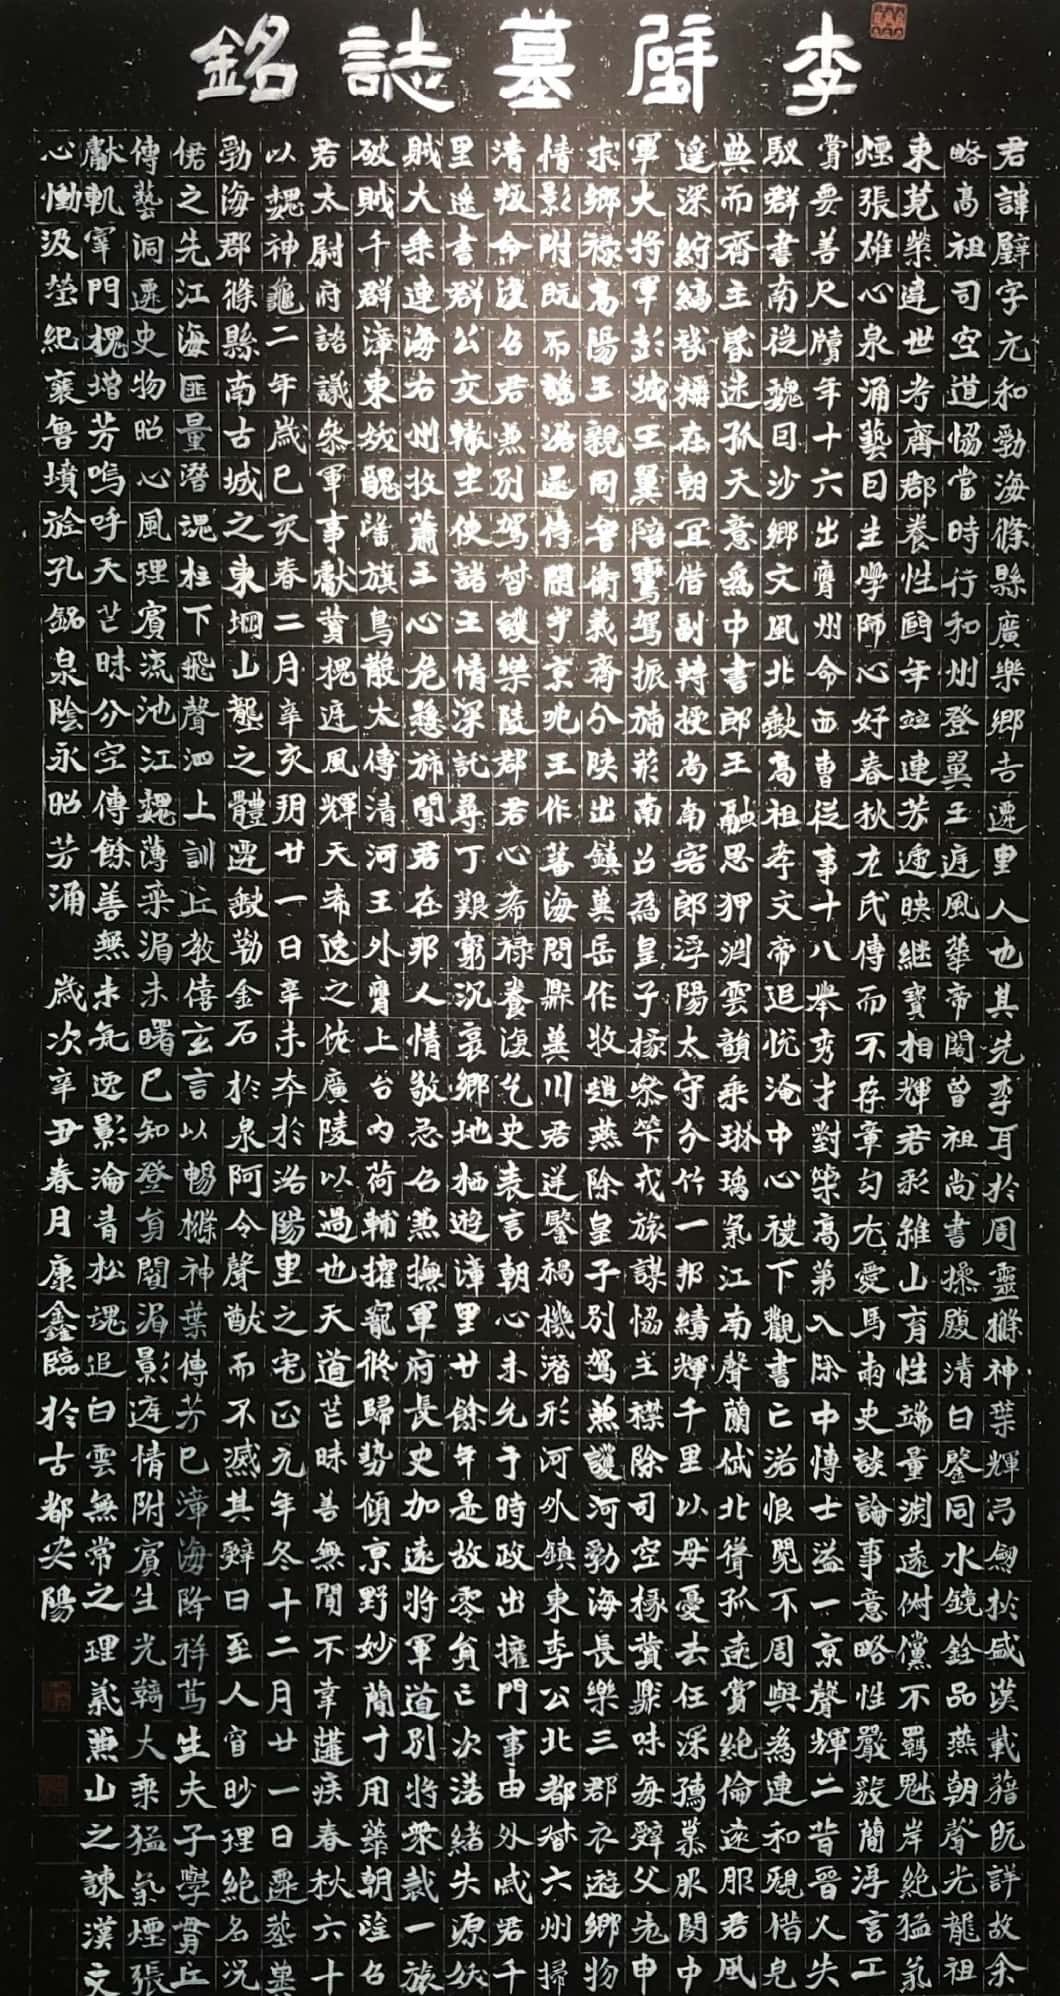 李壁墓誌銘
君諱璧字元和勃海條縣廣樂鄉吉遷里人也其先李耳於周靈櫾神葉輝弓劍於盛漢載籍既詳故余
略高祖司空道協當時行和州登翼王庭風華帝閣曾祖尚書操履清白鑒同水鏡銓品燕朝聲光龍祖
東莞榮達世考齊郡養性頤年並連芳遞映繼寶相輝君彩維山育性端量淵遠俶儻不羈魁岸絕猛氣
煙張雄心泉涌藝因生學師心好春秋左氏傳而不存章句尤愛馬兩史談論事意略性嚴毅簡浮言工
賞要善尺牘年十六出膺州命西曹從事十八舉秀才對策高第入除中博士溢一京聲輝二昔晉人失
馭群書南從魏因沙鄉文風北缺高祖孝文帝追悅淹中心稷下觀書亡落恨閱不周與為連和覬借完
典而齊主昏迷孤天意為中書郎王融思狎淵雲韻乘琳瑀氣江南聲蘭岱北聳孤遠賞絕倫遠服君風
遥深紵縞裁攜在朝宜借副轉授尚南客郎浮陽太守分竹一邦績輝千里以母憂去任深孺慕服闋中
軍大將軍彭城王翼陪鸞駕振旆荊南召為皇子掾參竿戎旅謀協主襟除司空掾贊鼎味每辭父老申
求鄉祿高陽王親同魯衛義齊分陝出鎮冀岳作牧趙燕除皇子別駕兼護河勃海長樂三郡衣遊鄉物
情影附既而謠滋還侍閣等京兆王作蕃海問鼎冀川君逆鑒禍機潛形河外鎮東李公北都督六州掃
清叛命復召君兼別駕督護樂陵郡君心希祿養復乞史表言朝心未允于時政出權門事由外戚君千
里遥書群公交轍坐使諸王情深託尋丁艱窮沉哀鄉地栖遊漳里廿餘年是故零負亡次落緒失源妖
賊大乘連海右州牧蕭王心危懸旆聞君在邦人情敬忌召兼撫軍府長史加遠將軍道別將衆裁一旅
破賊千群漳東妖醜潘旗鳥散太傅清河王外膺上台內荷輔擢寵終歸勢傾京野妙簡寸用華朝蔭召
君太尉府諮議參軍事獻贊槐庭風輝天素遠之佐廣陵以過也天道芒昧善無間不幸遘疾春秋六十
以魏神龜二年歲己亥春二月辛亥玥廿一日辛未卒於洛陽里之宅正元年冬十二月廿一日遷葬冀
勃海郡條縣南古城之東堈山壟之體遷缺勒金石於泉阿令聲猷而不滅其辭曰至人窅眇理絕名况
君之先江海匪量潛魂柱下飛聲泗上訓丘教僖玄言以暢櫾神葉傳芳已漳海降祥篤生夫子學貫丘
傳藝洞遷史物昭心風理賓流池江魏薄乘湄未曙已知登年閽湄影遊情附賓生光鞹大乘猛氣煙張
獻軌宰門槐增芳嗚呼天芒昧分空傳餘善無未矣逸影淪青松魂追白雲無常之理義兼山之諫漢文
心慟汲塋紀襄魯墳旌孔銘泉陰永昭芳涌 歲次辛丑春月康鑫臨於古都安陽